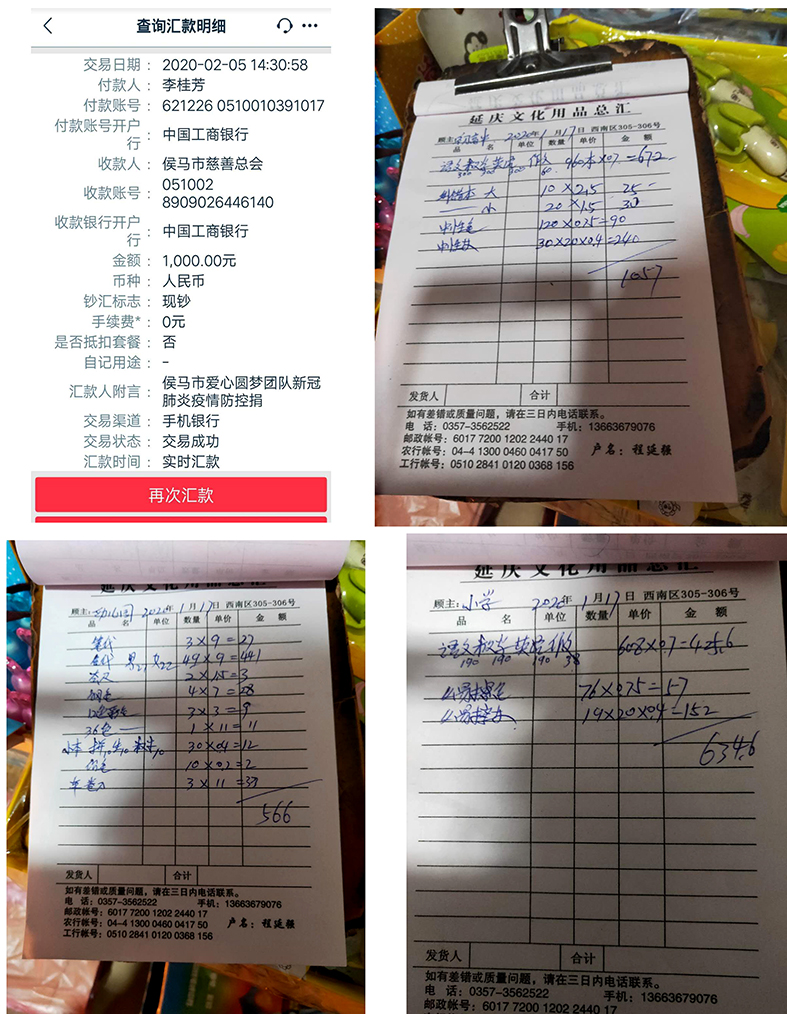 查询汇款明细
交易日期： 2020-02-05 14:30:58
付款人： 李桂芳
付款账号： 621226 0510010391017
付款账号开户行： 中国工商银行
收款人： 侯马市慈善总会
收款账号： 051002
8909026446140
收款银行开户行： 中国工商银行
金额： 1,000.00元
币种： 人民币
钞汇标志： 现钞
手续费*： 0元
是否抵扣套餐： 否
自记用途： -
汇款人附言： 侯马市爱心圆梦团队新冠
肺炎疫情防控捐
交易渠道： 手机银行
交易状态： 交易成功
汇款时间： 实时汇款
再次汇款
延庆文化用品总汇
顾主： 2020年1月17日 西南区305-306号
品 名 单位 数量 单价 金 额
语文 数学 英语 作 960本×0.7=672
纠错本 大 10×2.5 25
小 20×1.5 30
中性笔 120×0.75=90
中性 30×20×0.4=240
1057
发货人 合计
如有差错或质量问题，请在三日内电话联系。
电 话：0357-3562522 手机：13663679076
邮政帐号：6017 7200 1202 2440 17
农行帐号：04-4 1300 0460 0417 50 户名：程延强
工行帐号：0510 2841 0120 0368 156
延庆文化用品总汇
顾主：幼儿园 2020年1月17日 西南区305-306号
品 名 单位 数量 单价 金 额
笔袋 3×9=27
49×9=441
2×1.5=3
4×7=28
12色 3×3=9
36色 1×11=11
小本 拼 生 30×0.4=12
10×0.2=2
3×11=33
566
发货人 合计
如有差错或质量问题，请在三日内电话联系。
电 话：0357-3562522 手机：13663679076
邮政帐号：6017 7200 1202 2440 17
农行帐号：04-4 1300 0460 0417 50 户名：程延强
工行帐号：0510 2841 0120 0368 156
延庆文化用品总汇
顾主：小学 2020年1月17日 西南区305-306号
品 名 单位 数量 单价 金 额
语文 数学 英语 作 608×0.7=425.6
190 190 190 38
76×0.75=57
19×20×0.4=152
634.6
发货人 合计
如有差错或质量问题，请在三日内电话联系。
电 话：0357-3562522 手机：13663679076
邮政帐号：6017 7200 1202 2440 17